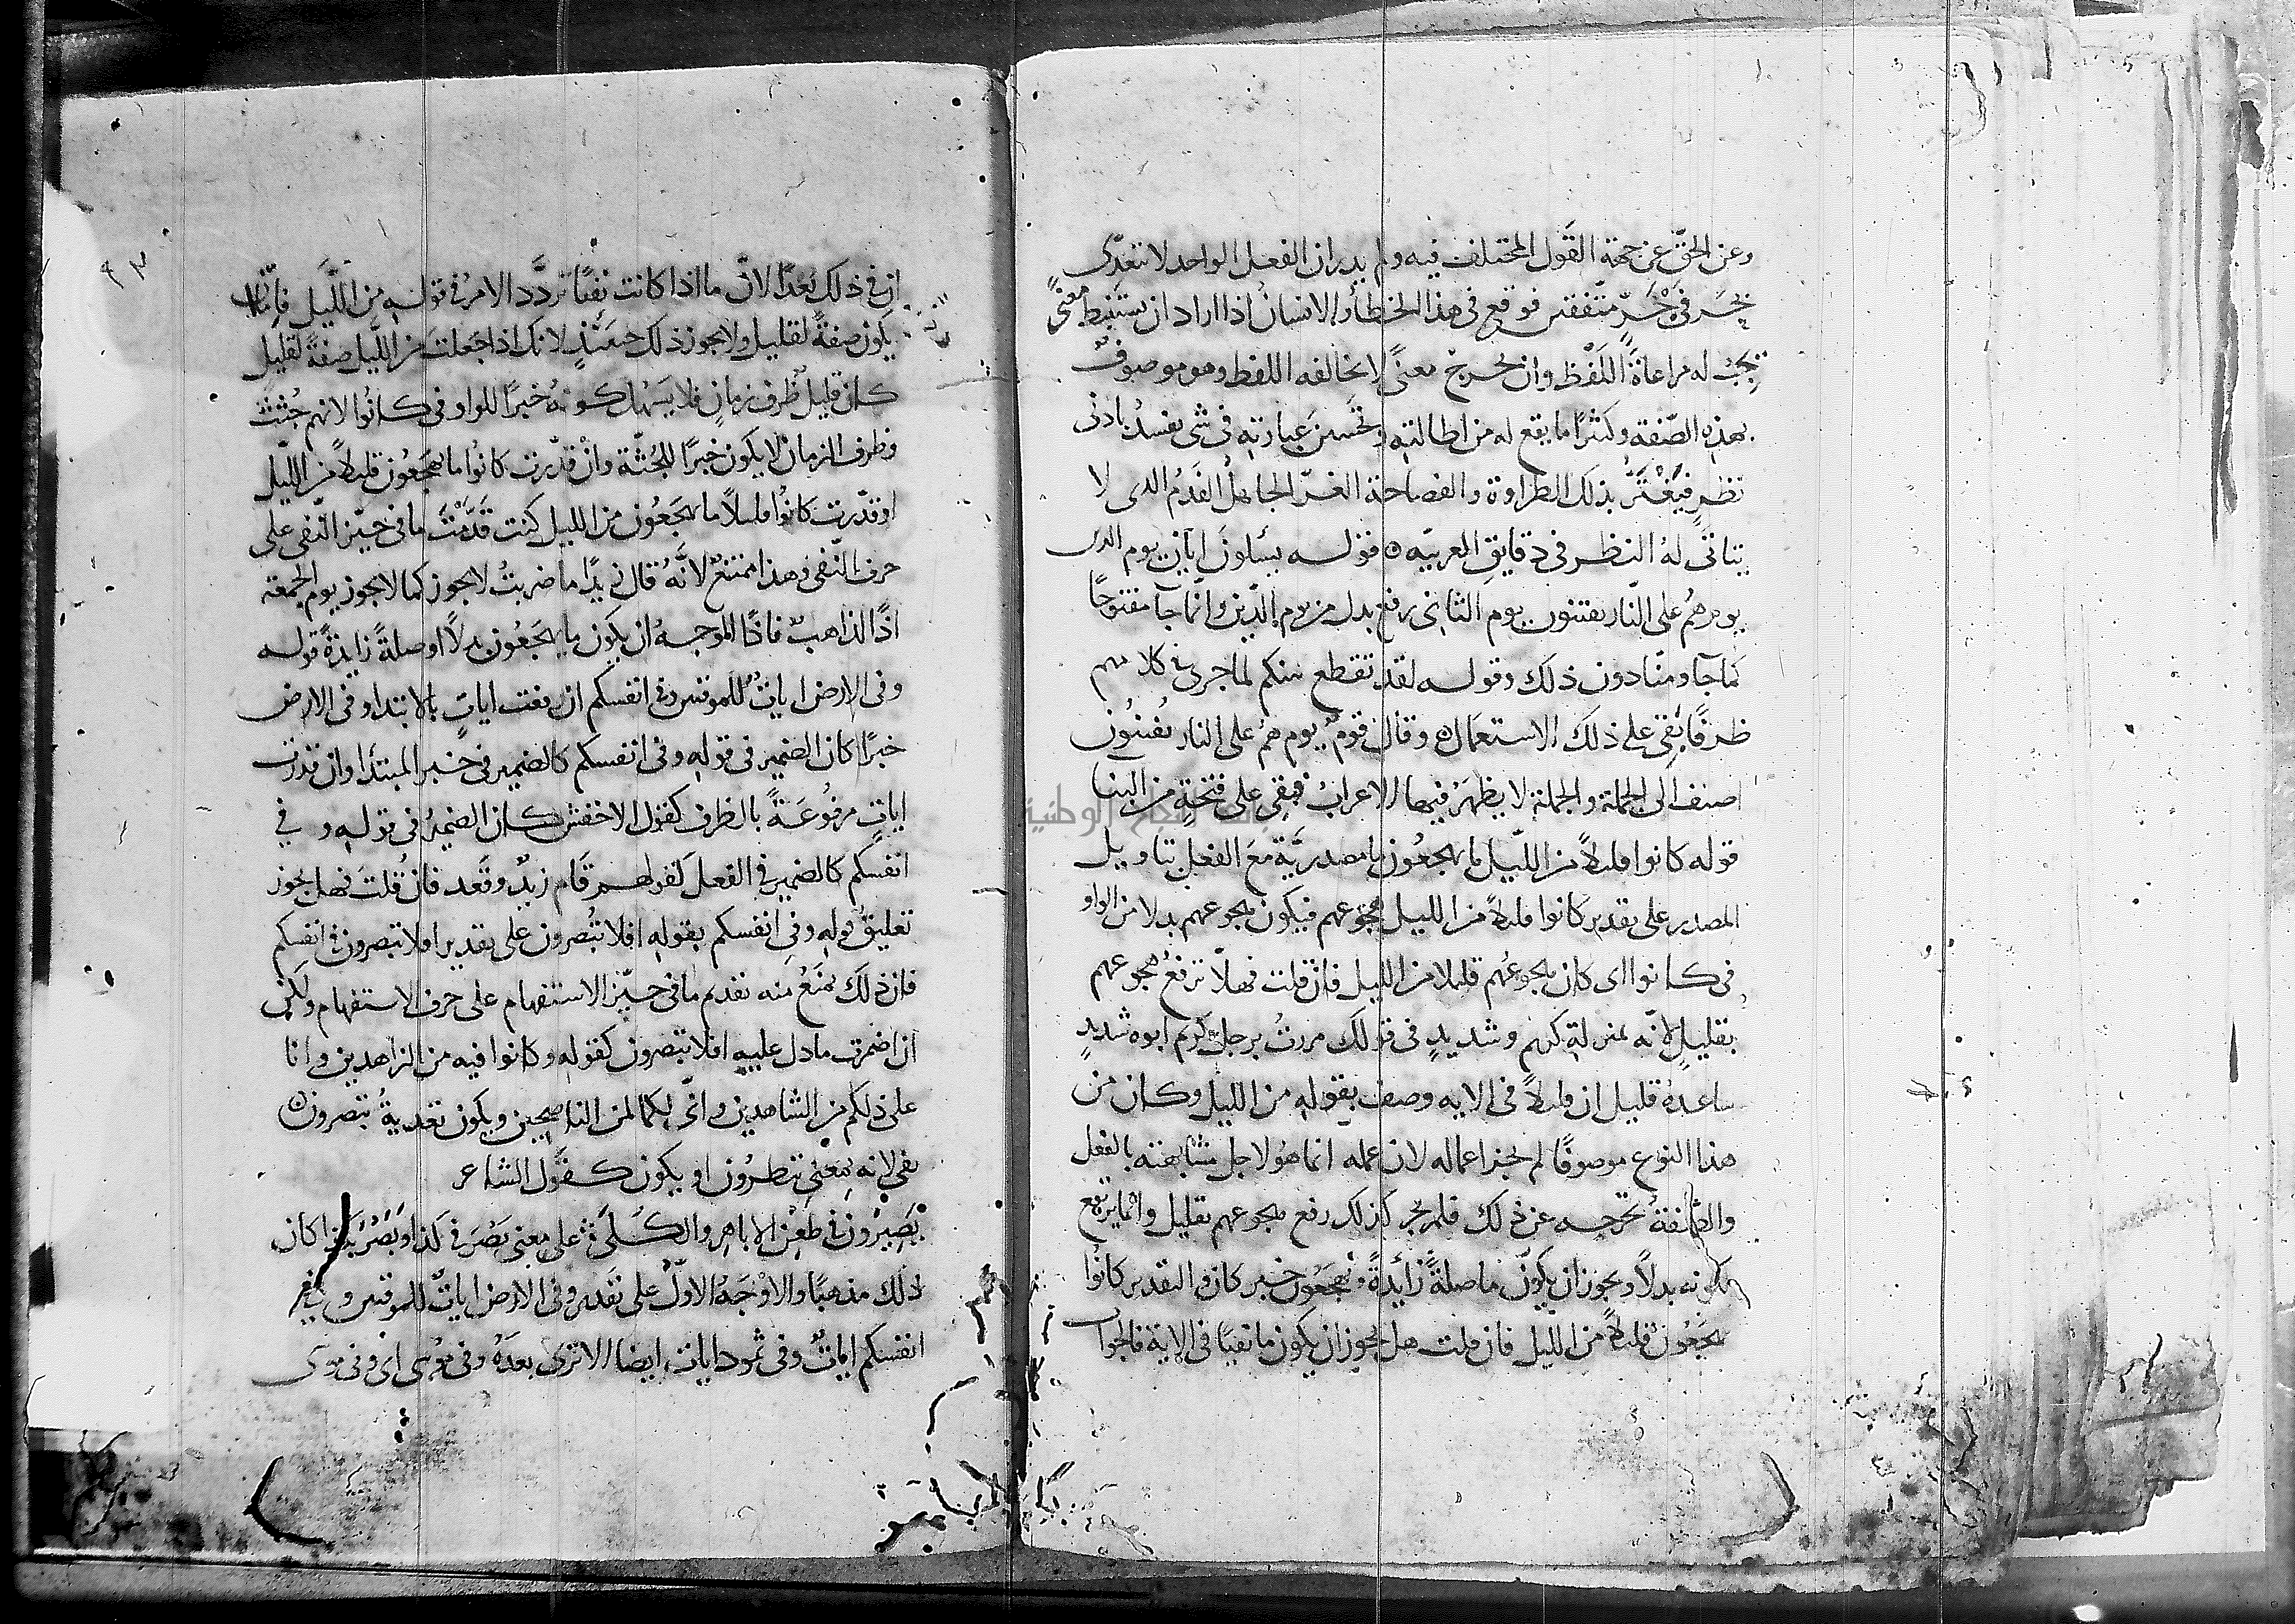 وعن الحقّ عن جهة القول المختلف فيه ولم يدر ان الفعل الواحد لا تتعدّى
بحَرفَي جَرٍّ متّفقين فوقع في هذا الخطأ والانسانُ اذا اراد ان يستنبط معنًى
يجبُ له مراعاةُ اللفْظ وان يخرج معنًى لا يخالفه اللفظ وهو موصوفٌ
بهذه الصّفة وكثيرًا ما يقع له من اطالته وتحسين عبارته في شى يفسدُ بادنى
نظرٍ فيَغْتَرُّ بذلك الطراوة والفصاحة الغرّ الجاهلُ الفَدمُ الذى لا
يتاتّى لهُ النظر في دقايق العربيّه قوله يسئلون ايّان يوم الدين
يوم هُم على النّار يفتنون يوم الثانى رفع بدل من يوم الدّين وانّما جآ مفتوحًا
كما جآ ومنّا دون ذلك وقوله لقد تقطع بينكم لما جرى فى كلامهم
ظرفًا بَقِى على ذلك الاستعمال وقال قومٌ يوم همُ على النار يُفتنُون
اضيف الى الجملة والجملة لا يظهَرُ فيها الاعرابُ فبقى على فتحةٍ من البنا
قوله كانوا قليلاً من اللّيل ما يهجعُون ما مصدريَّة معَ الفعلِ بتاويل
المصدر على تقدير كانوا قليلاً من الليل هجوعهم فيكون هجوعهم بدلا من الواو
فى كانوا اى كان هجوعُهم قليلا من الليل فان قلت فهلاّ ترفعُ هجوعهم
بقليلٍ لانّه بمنزلة كريم وشديدٍ فى قولك مررتُ برجلٍ كريم ابوه شديدٍ
ساعدهُ قليل ان قليلاً فى الايه وصف بقوله من الليل وكان من
هذا النوع موصوفًا لم يجز اعماله لان عمله انما هُو لاجل مشابهته بالفعل
والصّفةُ تخرجه عن ذلك فلم يجز كذلك رفع هجوعهم بقليل وانّما يرتفع
لكونه بدلاً ويجوز ان يكونَ ما صلةً زائدةً ويهجَعُون خبر كان والتقدير كانُوا
يهجَعُون قليلاً من اللّيل فان قلت هل يجوز ان يكون ما نفيًا فى الاية فالجواب
ان فى ذلك بُعدًا لانّ ما اذا كانت نفيًا تردَّد الامرُ فى قوله من اللّيل فإمّا ان
يكون صفةً لقليل ولا يجوز ذلك حينئذٍ لانك اذا جَعلت من اللّيل صفةً لقليل
كان قليلٌ ظرف زمانٍ فلا يَسهُل كونهُ خبرًا للواو فى كانُوا لانهم جُثث
وظرف الزمان لا يكون خبرًا للجُثّة وانْ قدّرت كانُوا ما يهجَعُون قليلاً من اللّيل
او قدّرت كانُوا قليلاً ما يهجَعُون من الليل كنت قَدَّمتَ ما فى حيّز النّفى على
حرف النّفى وهذا ممتنعٌ لانّهُ قال زيدًا ما ضربتُ لا يجوز كما لا يجوز يوم الجمعة
اذًا الذاهبُ فاذًا الموجهُ ان يكون ما يهجَعُون بدلاً او صلةً زايدةً قوله
وفى الارض اياتٌ للموقنين وفى انفسكم ان رفعت اياتٍ بالابتدا وفى الارض
خبرًا كان الضمير فى قوله وفى انفسكم كالضمير فى خبر المبتدا وان قدرت
اياتٍ مرفُوعَةً بالظرف كقول الاخفش كان الضميرُ فى قوله وفي
انفسكم كالضمير فى الفعل كقولهم قام زيدٌ وقَعد فان قُلتَ فهل يجوز
تعليقُ قوله وفي انفسكم بقوله افلا تُبصرون على تقدير افلا تبصرون فى انفسكم
فان ذلك يمنَعُ منه تقدم ما فى حيّز الاستفهام على حرف الاستفهام ولكن
ان اضمرت ما دل عليه افلا تبصرون كقوله وكانوا فيه من الزاهدين وانا
على ذلكم من الشاهدين وانّى لكما لمن الناصحين ويكون تعديةُ تبصرون
بفى لانه بمعنى تنظرُون او يكون كقول الشاعر
بَصِيرُون فى طَعْن الاباهر والكُلَى على معنى بَصُرَ فى كذا وبَصُرَ بكذا كان
ذلك مذهبًا والاوْجَهُ الاوّلُ على تقدير وفى الارض اياتٌ للموقنين وفى
انفسكم اياتٌ وفى ثمود ايات ايضا الا ترى بعدَهُ وفى موسى اى وفى موسى